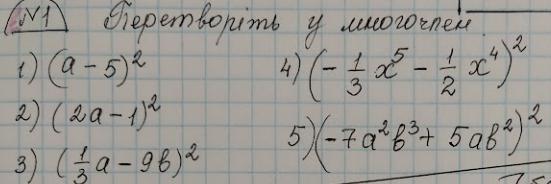 №1 Перетворіть у многочлен
1) (a - 5)²
2) (2a - 1)²
3) (1/3 a - 9b)²
4) (- 1/3 x⁵ - 1/2 x⁴)²
5) (-7a²b³ + 5ab²)²